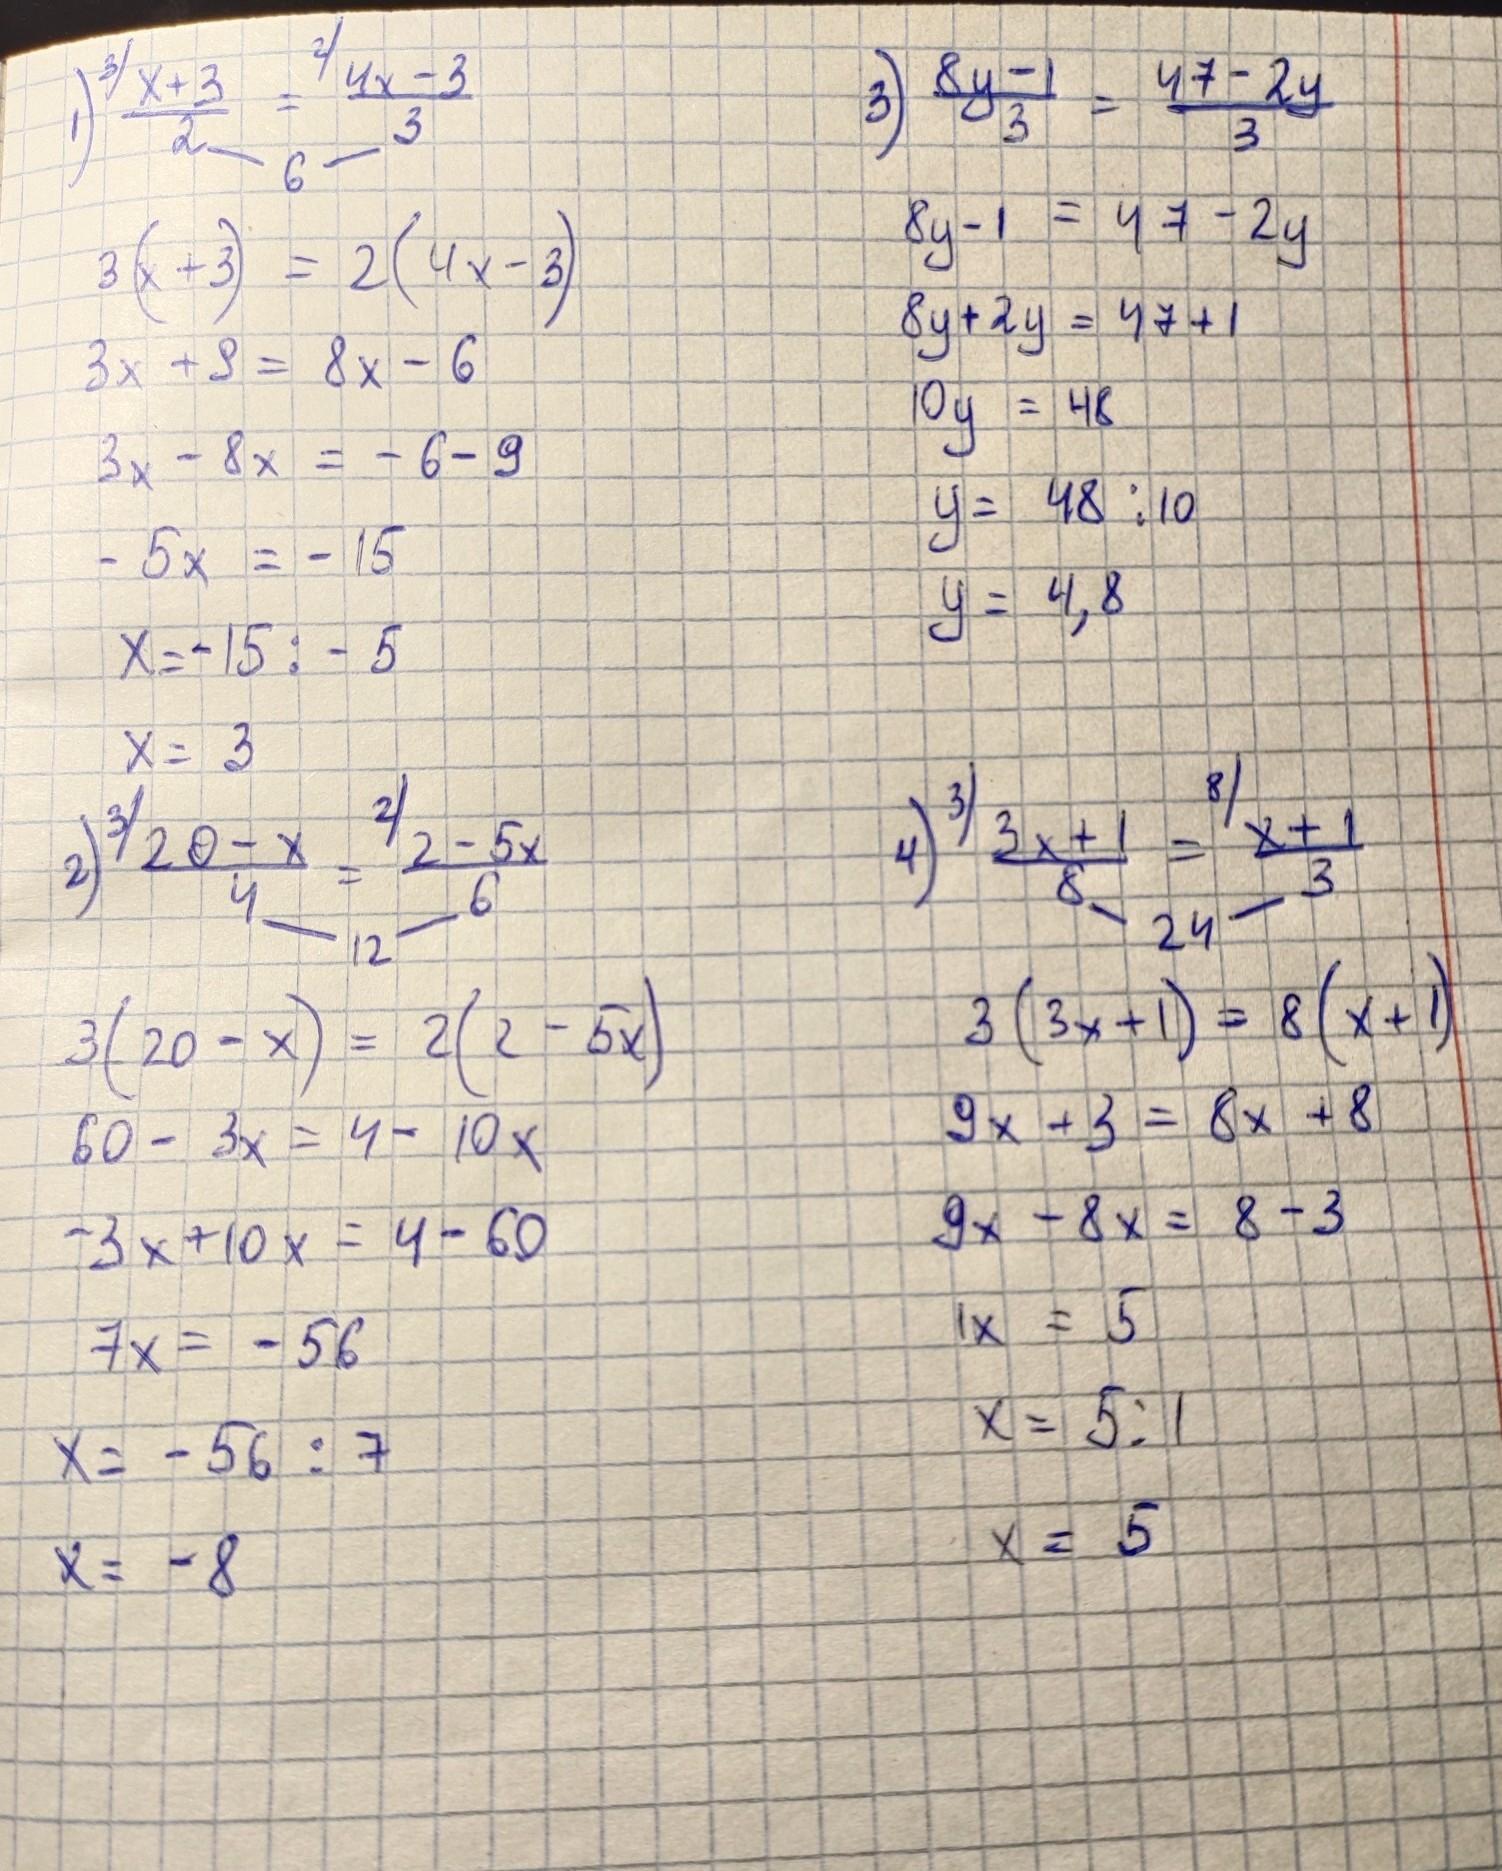 1) 3/ x+3/2 = 2/ 4x-3/3
6
3(x+3) = 2(4x-3)
3x+9 = 8x-6
3x-8x = -6-9
-5x = -15
x=-15:-5
x= 3
2) 3/ 20-x/4 = 2/ 2-5x/6
12
3(20-x) = 2(2-5x)
60-3x=4-10x
-3x+10x=4-60
7x= -56
x= -56:7
x= -8
3) 8y-1/3 = 47-2y/3
8y-1 = 47-2y
8y+2y = 47+1
10y = 48
y= 48:10
y= 4,8
4) 3/ 3x+1/8 = 8/ x+1/3
24
3(3x+1) = 8(x+1)
9x+3=8x+8
9x-8x= 8-3
1x = 5
x= 5:1
x= 5